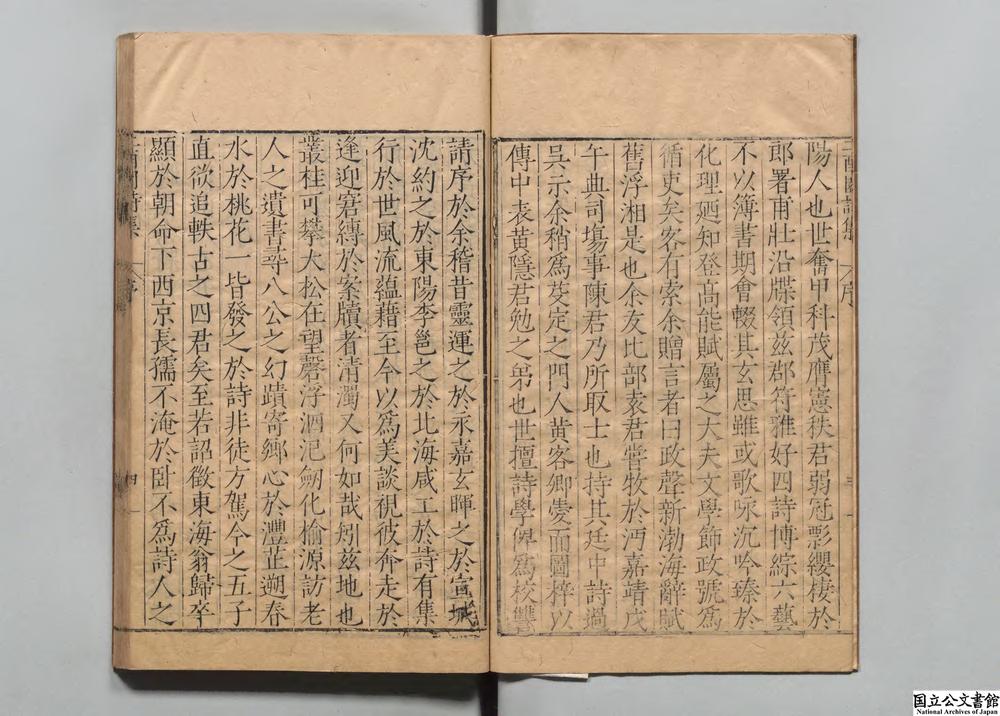 陽人也世奮甲科茂膺憲秩君弱冠影纓棲於
郎署甫壯沿牒領茲郡符雅好四詩博綜六藝
不以簿書期會輟其玄思雖或歌咏沉吟臻於
化理廼知登高能賦屬之大夫文學飾政號爲
循吏矣客有索余贈言者曰政聲新渤海辭賦
舊浮湘是也余友比部袁君嘗牧於沔嘉靖戊
午典司塲事陳君乃所取士也持其廷中詩過
吳示余稍爲芟定之門人黄客卿爰而圖梓以
傳中表黄隱君勉之弟也世擅詩學俾爲校讐
序
三
請序於余稽昔靈運之於永嘉玄暉之於宣城
沈約之於東陽李邕之於北海咸工於詩有集
行於世風流蘊藉至今以爲美談視彼奔走於
逢迎窘縛於案牘者清濁又何如哉矧茲地也
叢桂可攀大松在望磬浮泗汜劒化榆源訪老
人之遺書尋八公之幻蹟寄鄉心於灃芷遡春
水於桃花一皆發之於詩非徒方駕今之五子
直欲追軼古之四君矣至若詔徵東海翁歸卒
顯於朝命下西京長孺不淹於卧不爲詩人之
詩集
序
四
国立公文書館
National Archives of Japan